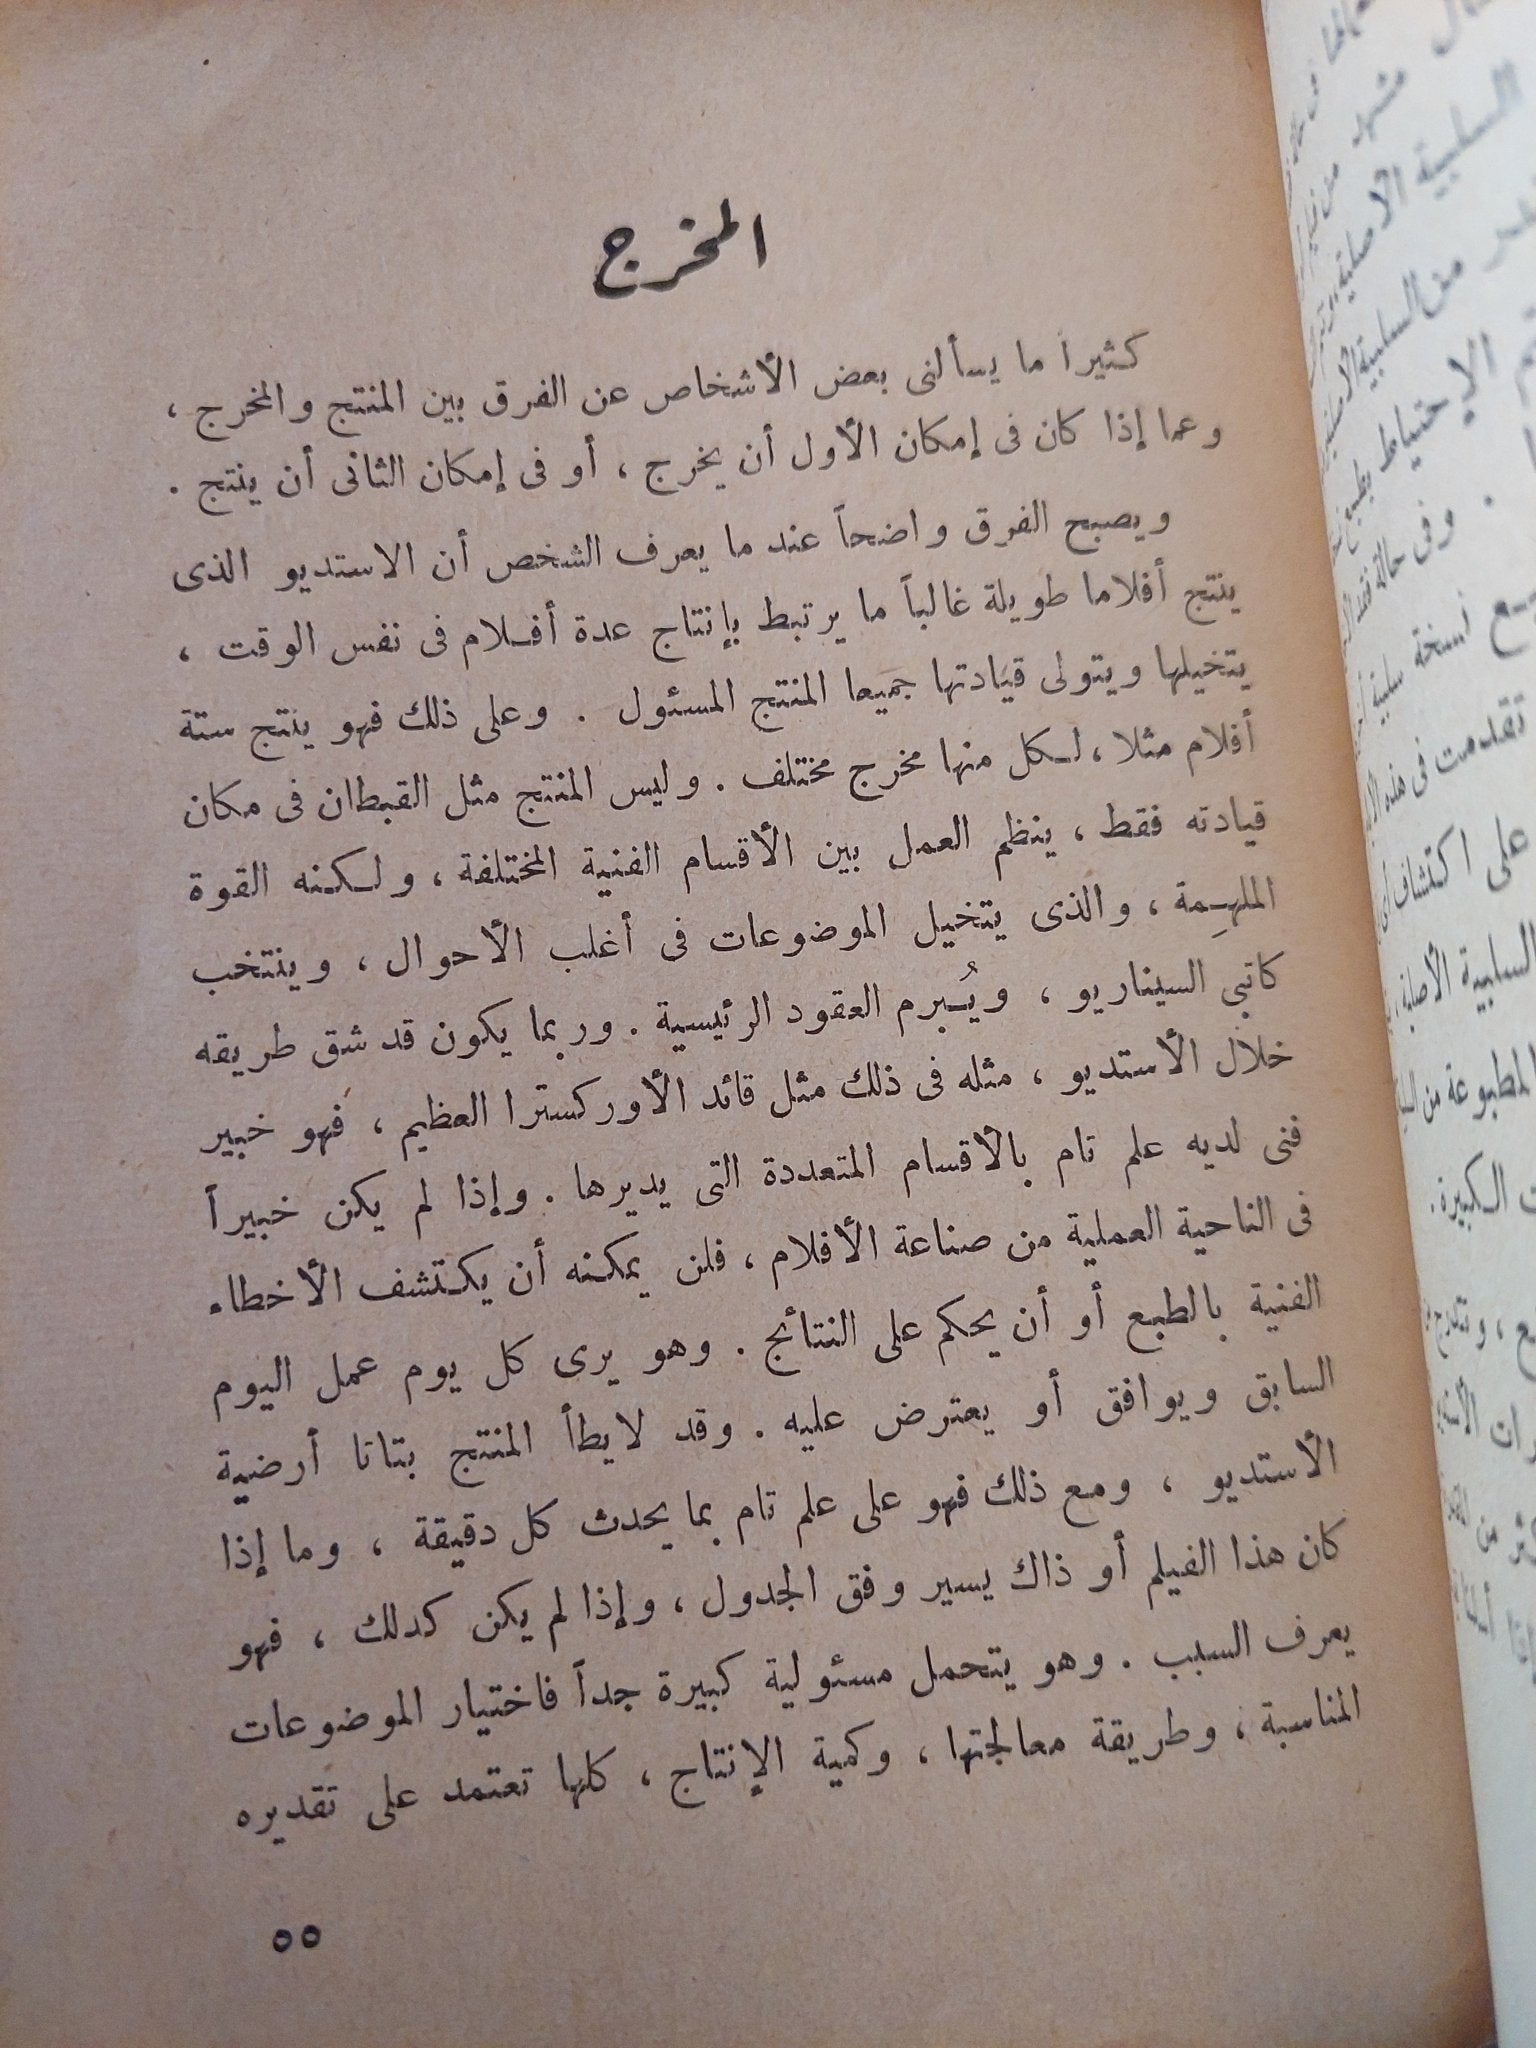 المخرج
كثيراً ما يسألنى بعض الأشخاص عن الفرق بين المنتج والمخرج ،
وعما إذا كان فى إمكان الأول أن يخرج ، أو فى إمكان الثانى أن ينتج .
ويصبح الفرق واضحاً عند ما يعرف الشخص أن الاستديو الذى
ينتج أفلاما طويلة غالباً ما يرتبط بإنتاج عدة أفلام فى نفس الوقت ،
يتخيلها ويتولى قيادتها جميعا المنتج المسئول . وعلى ذلك فهو ينتج ستة
أفلام مثلا ، لكل منها مخرج مختلف . وليس المنتج مثل القبطان فى مكان
قيادته فقط ، ينظم العمل بين الأقسام الفنية المختلفة ، ولكنه القوة
الملهِمة ، والذى يتخيل الموضوعات فى أغلب الأحوال ، وينتخب
كاتبي السيناريو ، ويُبرم العقود الرئيسية . وربما يكون قد شق طريقه
خلال الأستديو ، مثله فى ذلك مثل قائد الأوركسترا العظيم ، فهو خبير
فنى لديه علم تام بالأقسام المتعددة التى يديرها . وإذا لم يكن خبيراً
فى الناحية العملية من صناعة الأفلام ، فلن يمكنه أن يكتشف الأخطاء
الفنية بالطبع أو أن يحكم على النتائج . وهو يرى كل يوم عمل اليوم
السابق ويوافق أو يعترض عليه . وقد لا يطأ المنتج بتاتا أرضية
الأستديو ، ومع ذلك فهو على علم تام بما يحدث كل دقيقة ، وما إذا
كان هذا الفيلم أو ذاك يسير وفق الجدول ، وإذا لم يكن كدلك ، فهو
يعرف السبب . وهو يتحمل مسئولية كبيرة جداً فاختيار الموضوعات
المناسبة ، وطريقة معالجتها ، وكمية الإنتاج ، كلها تعتمد على تقديره
٥٥
السلبية الأصلية
من السلبية
الاحتياط بطبع
. وفى حالة فقد
نسخة سلبية
تقدمت فى هذه
على اكتشاف أى
السلبية الأصلية ،
المطبوعة من
الكبيرة .